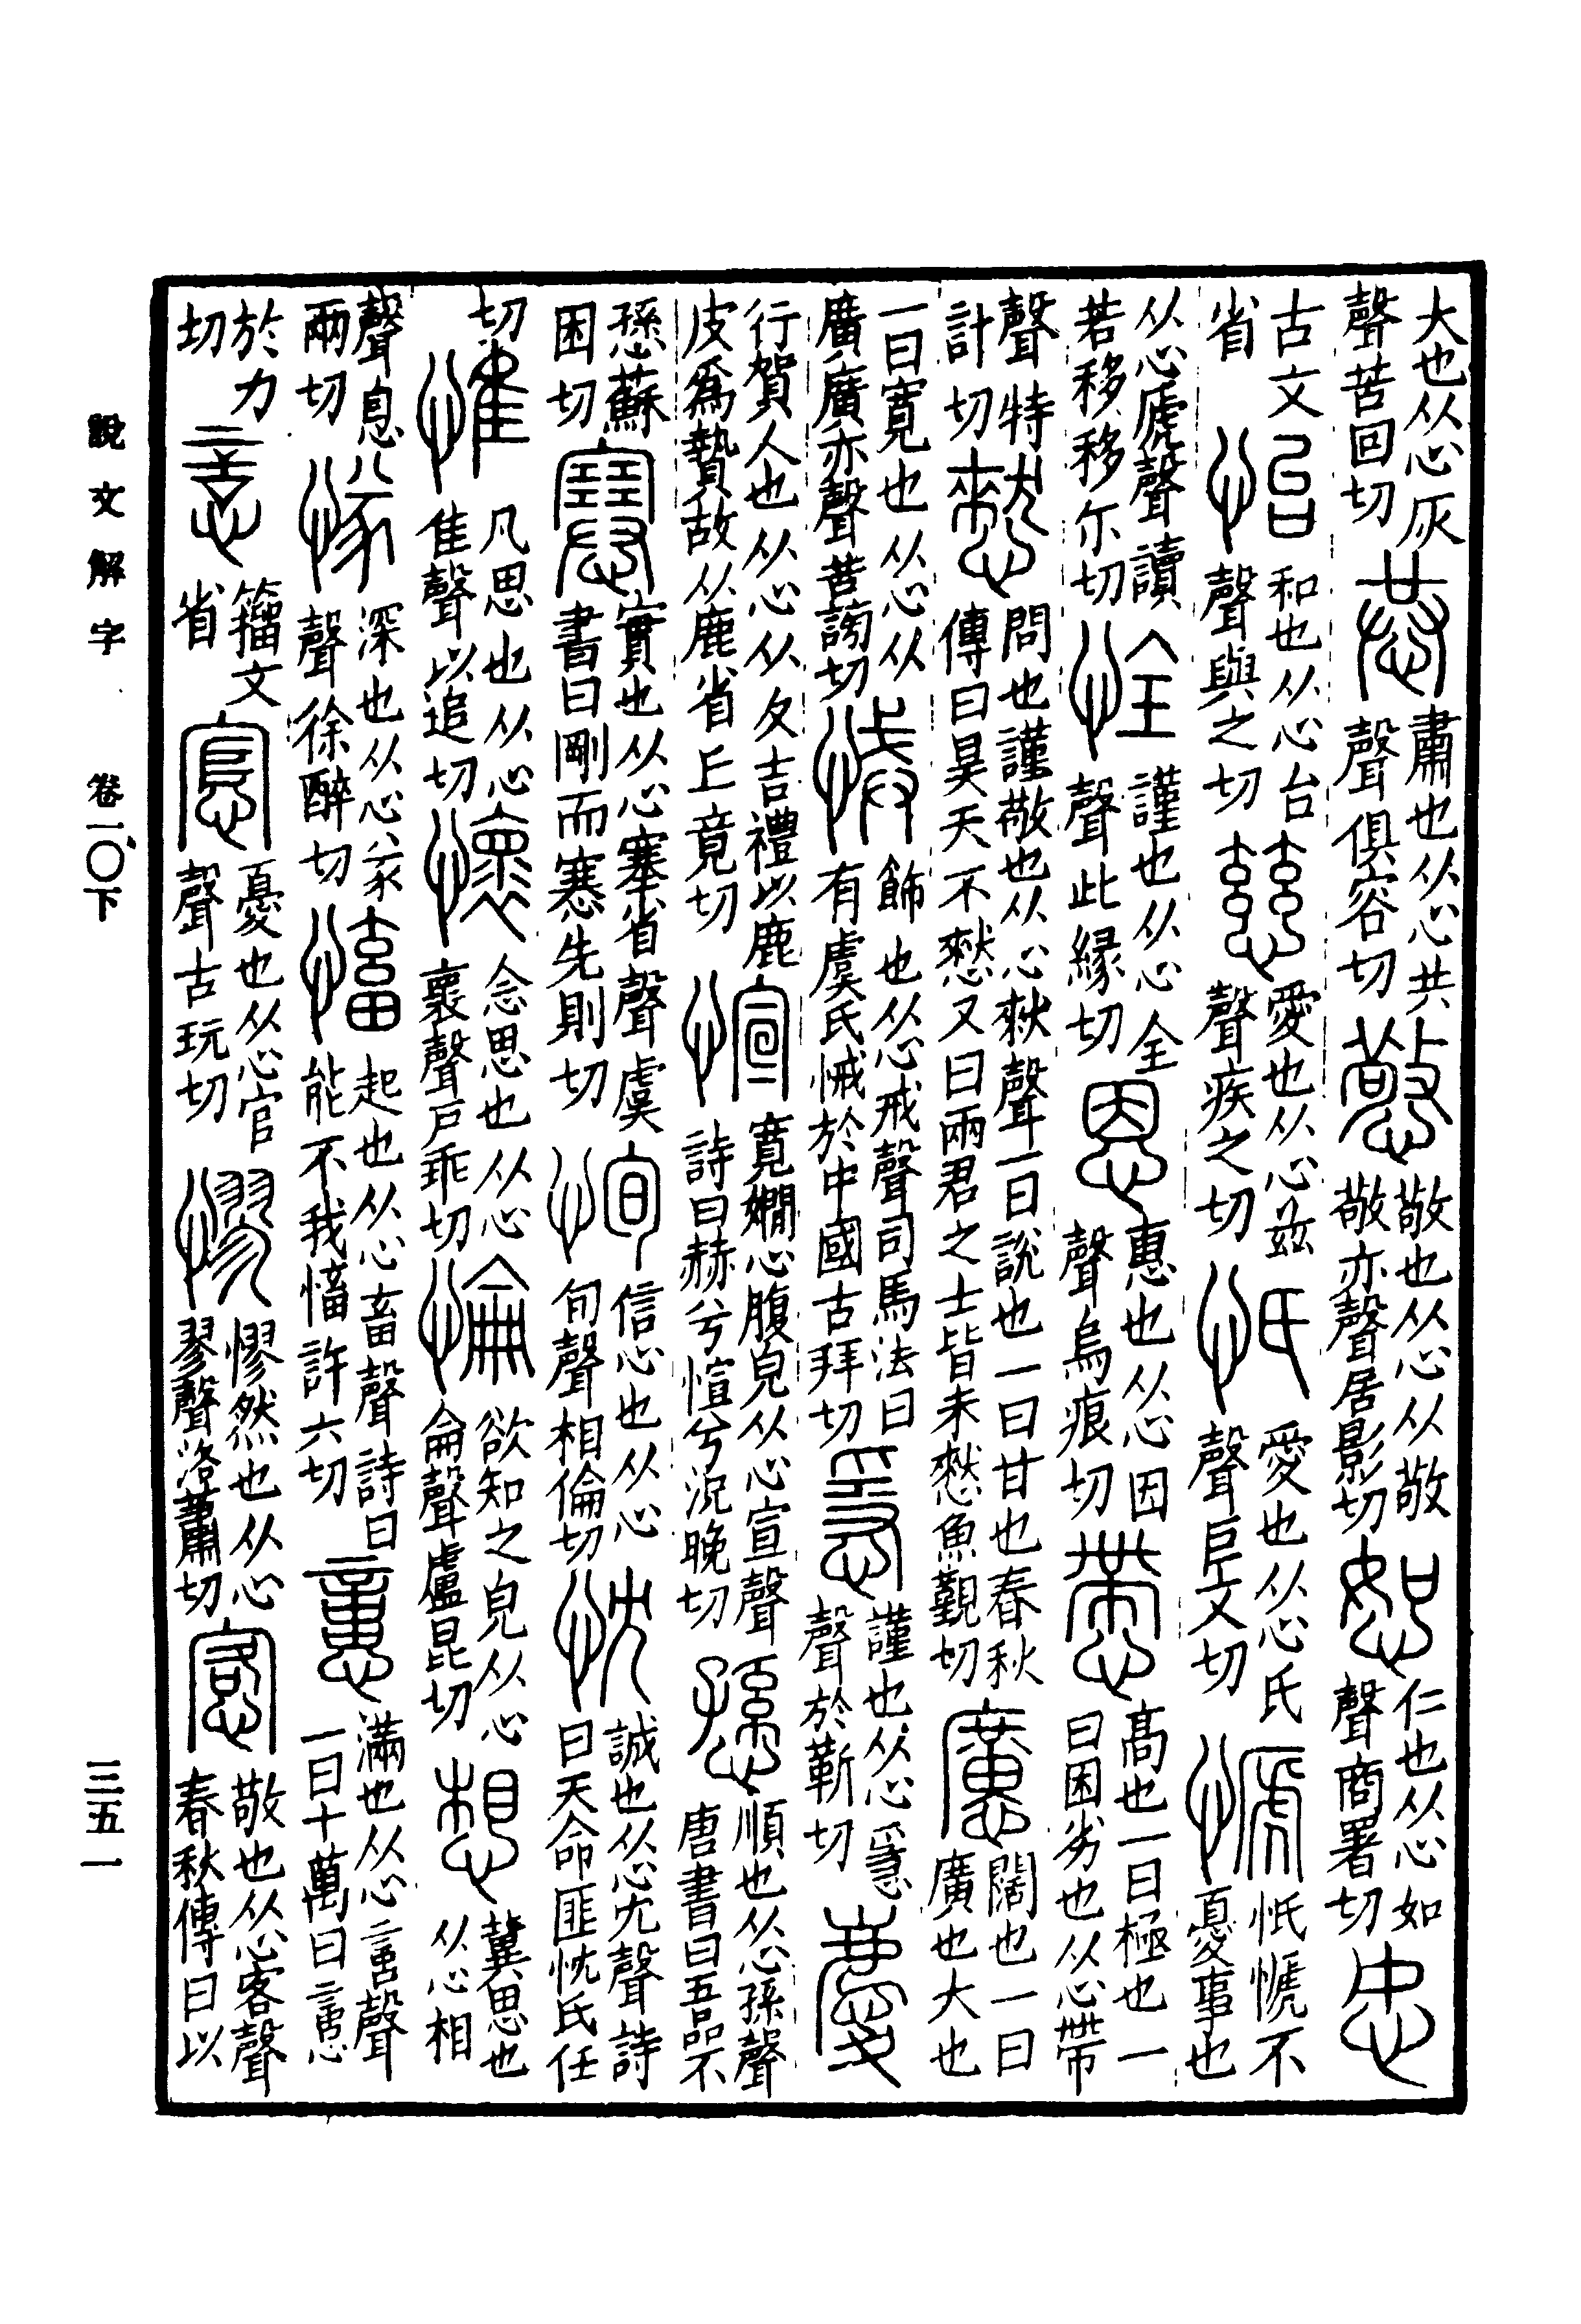 大也从心灰聲苦回切 恭 肅也从心共聲俱容切 憼 敬也从心从敬敬亦聲居影切 恕 仁也从心如聲商署切 㣽
古文省 怡 和也从心台聲與之切 慈 愛也从心兹聲疾之切 忯 愛也从心氏聲巨支切 㥴 忯㥴不憂事也
从心虒聲讀若移移尓切 恮 謹也从心全聲此緣切 恩 惠也从心因聲烏痕切 慸 高也一曰極也一曰困劣也从心帶
聲特計切 憖 問也謹敬也从心猌聲一曰說也一曰甘也春秋傳曰昊天不憖又曰兩君之士皆未憖魚覲切 懬 闊也一曰廣也大也
一曰寬也从心从廣廣亦聲苦謗切 悈 飾也从心戒聲司馬法曰有虞氏悈於中國古拜切 㥯 謹也从心㥯聲於靳切 慶
行賀人也从心从夂吉禮以鹿皮爲贄故从鹿省丘竟切 愃 寬嫺心腹皃从心宣聲詩曰赫兮愃兮況晚切 愻 順也从心孫聲唐書曰五品不
愻蘇困切 𡫳 實也从心塞省聲虞書曰剛而𡫳先則切 恂 信心也从心旬聲相倫切 忱 誠也从心冘聲詩曰天命匪忱氏任
切 惟 凡思也从心隹聲以追切 懷 念思也从心褱聲戶乖切 惀 欲知之皃从心侖聲盧昆切 想 冀思也从心相
聲息兩切 㥞 深也从心㒸聲徐醉切 慉 起也从心畜聲詩曰能不我慉許六切 𢡃 滿也从心𠶷聲一曰十萬曰𢡃
於力切 𢡃 籀文省 悹 憂也从心官聲古玩切 憀 憀然也从心翏聲洛蕭切 愙 敬也从心客聲春秋傳曰以
說文解字 卷一〇下 三五一